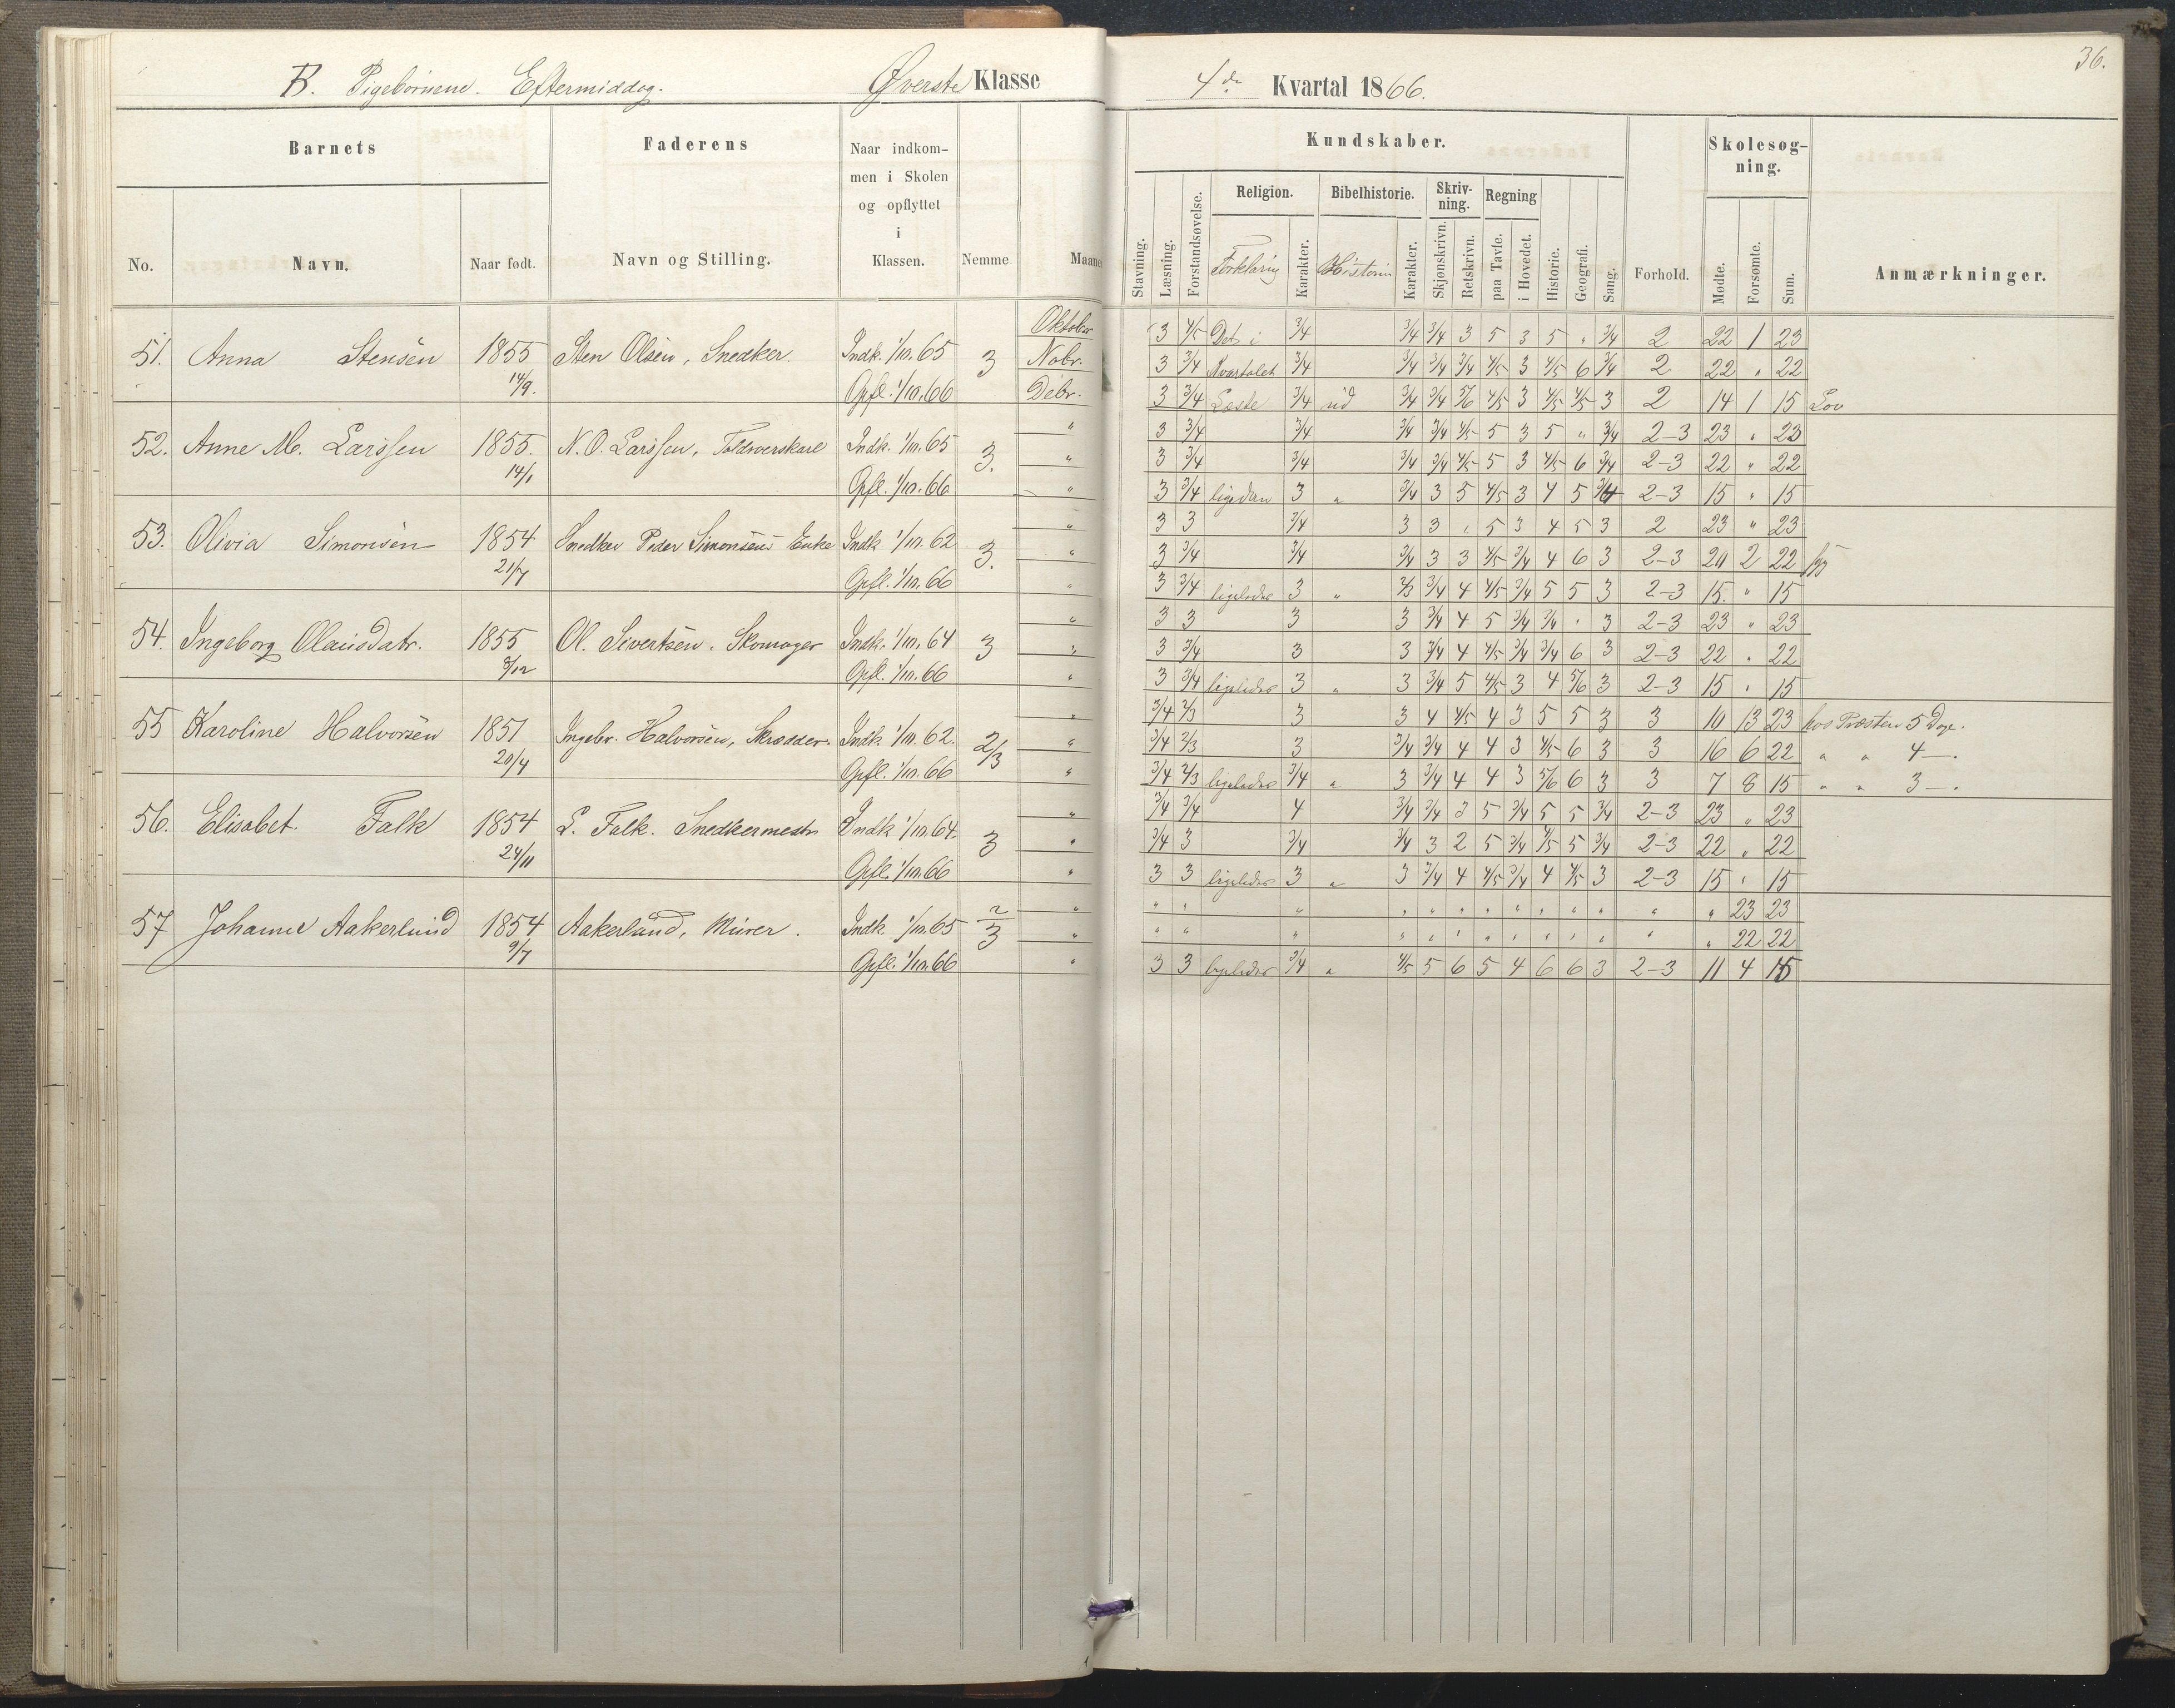 36.
B. Pigebørnene. Eftermiddag. Øverste Klasse 4de Kvartal 1866.
Barnets Faderens Naar indkommen i Skolen og opflyttet i Klassen. Nemme Maaned
No. Navn. Naar født. Navn og Stilling.
Kundskaber. Forhold. Skolesøgning. Anmærkninger.
Stavning. Læsning. Forstandsøvelse. Religion. Forklaring Karakter. Bibelhistorie. Historie Karakter. Skrivning. Skjønskrivn. Retskrivn. Regning paa Tavle. i Hovedet. Historie. Geografi. Sang. Mødte. Forsømte. Sum.
51. Anna Stensen 1855 14/9. Sten Olsen, Snedker. Indk. 1/10. 65 Opfl. 1/10. 66 3
Oktober 3 4/5 Det i 3/4 3/4 3/4 3 5 3 5 " 3/4 2 22 1 23
Nobr. 3 3/4 Kvartalet 3/4 3/4 3/4 3/4 4/5 3 4/5 6 3/4 2 22 " 22
Debr. 3 3/4 Læste 3/4 ud 3/4 3/4 5/6 4/5 3 4/5 4/5 3 2 14 1 15 Lov
52. Anne M. Larssen 1855. 14/1 N. O. Larssen, Indk. 1/10. 65 Opfl. 1/10. 66 3.
" 3 3/4 3/4 3/4 3/4 4/5 5 3 5 " 3/4 2-3 23 " 23
" 3 3/4 3/4 3/4 3/4 4/5 5 3 4/5 6 3/4 2-3 22 " 22
" 3 3/4 ligedan 3 " 3/4 3 5 4/5 3 4 5 3/4 2-3 15 " 15
53. Olivia Simonsen 1854 21/7 Snedker Peder Simonsens Enke Indk. 1/10. 62 Opfl. 1/10. 66 3.
" 3 3 3/4 3 3 " 5 3 4 5 3 2 23 " 23
" 3 3/4 3/4 3/4 3 3 4/5 3/4 4 6 3 2-3 20 2 22 syg
" 3 3/4 ligeledes 3 " 2/3 3/4 4 4/5 3/4 5 5 3 2-3 15. " 15
54. Ingeborg Olausdatr. 1855 8/12 Ol. Sivertsen, Skomager Indk. 1/10. 64 Opfl. 1/10. 66 3
" 3 3 3 3 3/4 4 5 3/4 3/4 " 3 2-3 23 " 23
" 3 3/4 3 3 3/4 4 4/5 3/4 3/4 6 3 2-3 22 " 22
" 3 3/4 ligeledes 3 " 3 3/4 5 4/5 3 4 5/6 3 2-3 15 " 15
55 Karoline Halvorsen 1851 20/4 Ingebr. Halvorsen, Skrædder. Indk. 1/10. 62. Opfl. 1/10. 66 2/3
" 3/4 2/3 3 3 4 4/5 4 3 5 5 3 3 10 13 23 hos Præsten 5 Dage.
" 3/4 2/3 3 3/4 3/4 4 4 3 4/5 6 3 3 16 6 22 " " 4 —.
" 3/4 2/3 ligeledes 3/4 " 3 3/4 4 4 3 5/6 6 3 3 7 8 15 " " 3 —.
56. Elisabet Falk 1854 24/11 L. Falk. Snedkermestr Indk 1/10. 64. Opfl. 1/10. 66 3
" 3/4 3/4 4 3/4 3/4 3 5 3/4 5 5 3/4 2-3 23 " 23
" 3/4 3 3/4 3/4 3 2 5 3/4 4/5 5 3/4 2-3 22 " 22
" 3 3 ligeledes 3 " 3 3/4 4 4/5 3/4 4 4/5 3 2-3 15 " 15
57 Johanne Aakerlund 1854 9/7 Aakerlund, Murer. Indk. 1/10. 65 Opfl. 1/10. 66 2/3
" " " " " " " " " " " " " " 23 23
" " " " " " " " " " " " " " 22 22
" 3 3 ligeledes 3/4 " 4/5 5 6 5 4 6 6 3 2-3 11 4 15